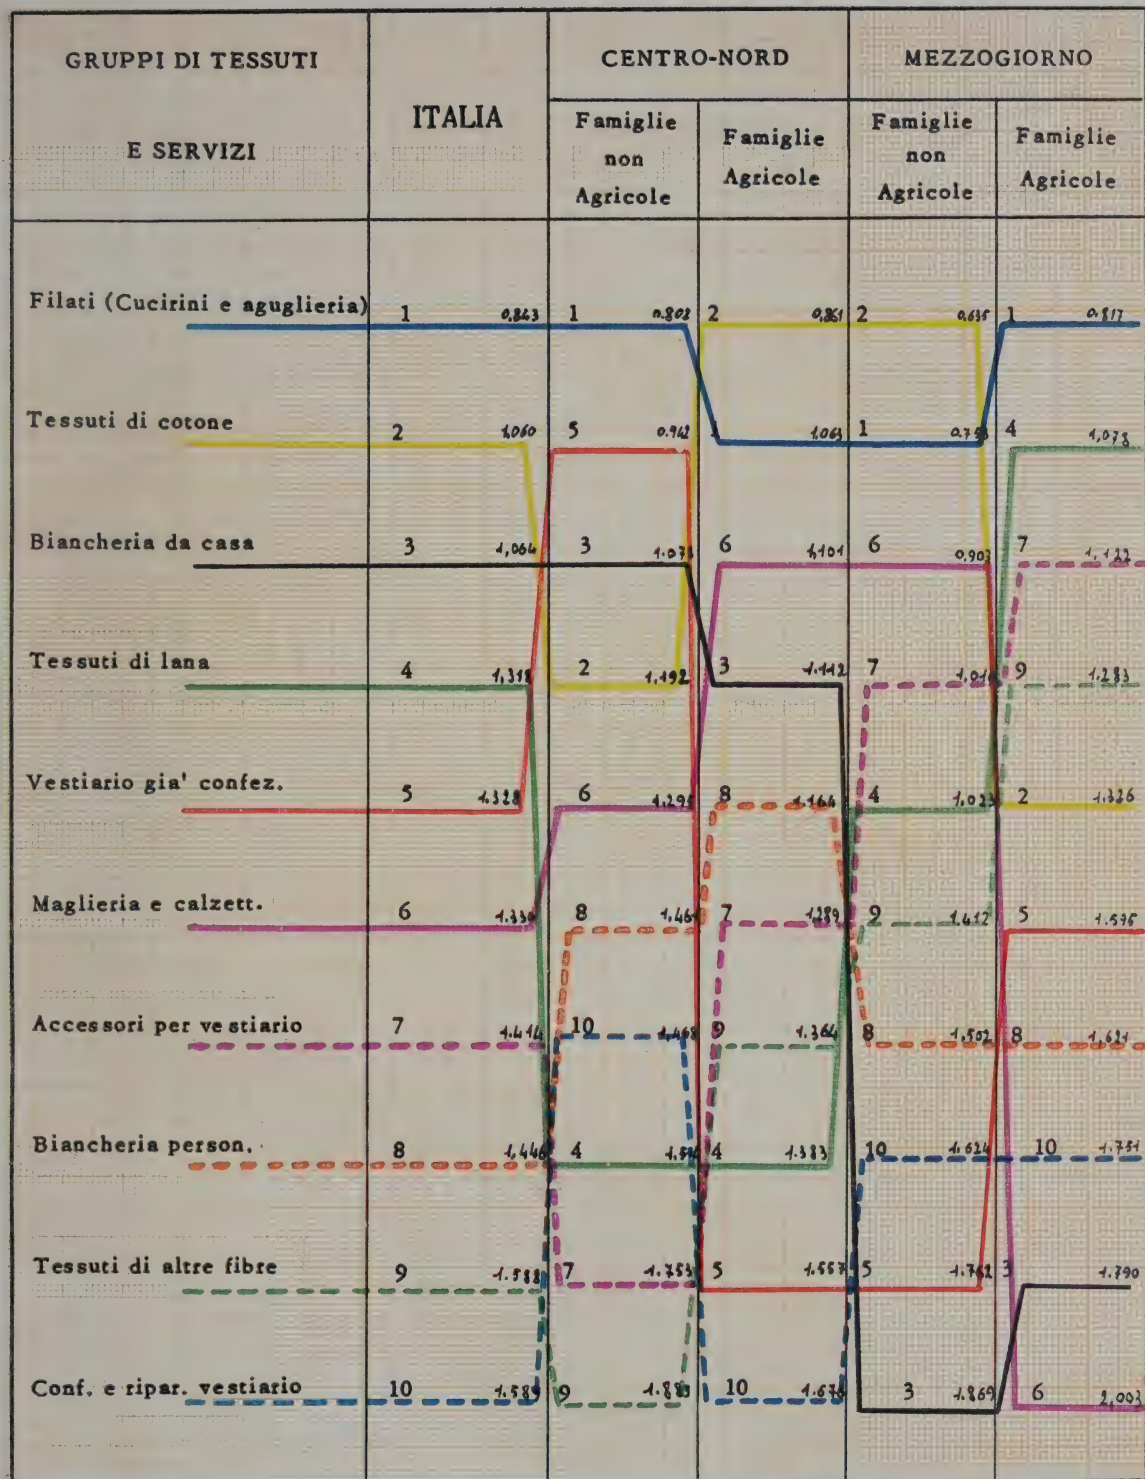 GRUPPI DI TESSUTI
E SERVIZI
ITALIA
CENTRO-NORD
MEZZOGIORNO
Famiglie
non
Agricole
Famiglie
Agricole
Famiglie
non
Agricole
Famiglie
Agricole
Filati (Cucirini e aguglieria) 1 0,843 1 0.802 2 0,861 2 0,635 1 0.817
Tessuti di cotone 2 1,060 5 0.942 1,063 1 4 1,078
Biancheria da casa 3 1,064 3 6 1,101 6 0,903 7 1,122
Tessuti di lana 4 1,318 2 1,192 3 1.112 7 9 1.283
Vestiario gia' confez. 5 1.328 6 8 1.164 4 1,023 2 1.326
Maglieria e calzett. 6 8 7 1.289 9 1.412 5 1.595
Accessori per vestiario 7 1.414 10 1,468 9 1.364 8 1,502 8 1,621
Biancheria person. 8 1,446 4 4 1.383 10 1.624 10 1.751
Tessuti di altre fibre 9 1.588 7 1.753 5 1.557 5 1.762 3 1.790
Conf. e ripar. vestiario 10 1.589 9 10 3 1.869 6 2,003